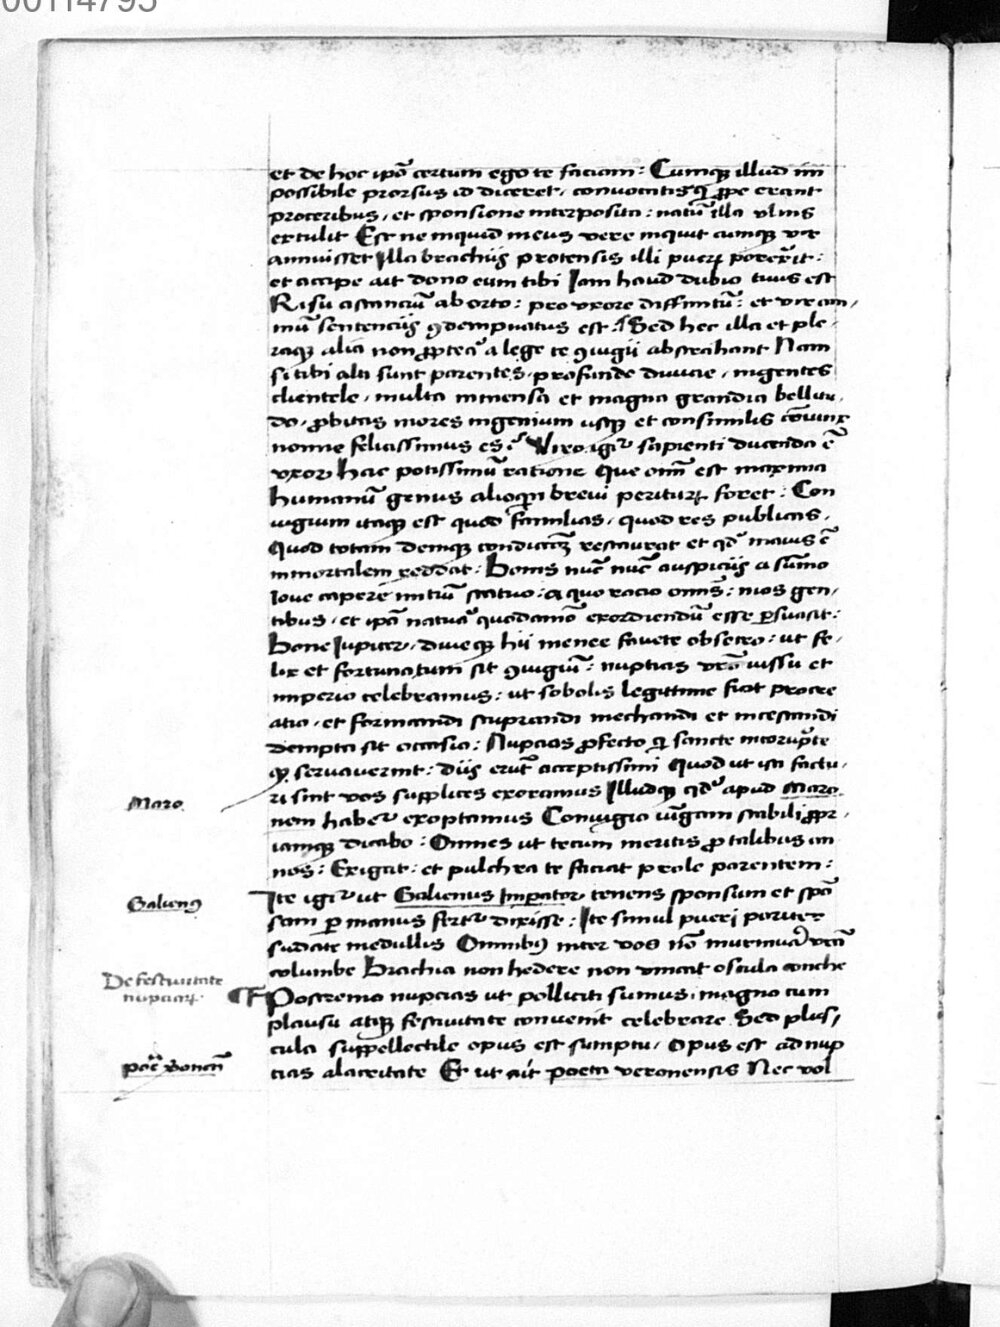 00114795
et de hoc ipō certum ego te faciam: Cumqȝ illud im
possibile prorsus id diceret, convocatisqȝ ꝓpe erant
proceribus, et sponsione interposita: natū illa ulnis
extulit Est ne inquid meus vere inquit cumqȝ vir
annuisset Illa brachiis protensis illi puerꝝ porexit:
et accipe ait dono eum tibi Iam haud dubio tuus est
Risu astanciū aborto: pro uxore diffinitū: et vir om,
niū sentenciis ꝯdempnatus est. Sed hec illa et ple,
raqȝ alia non ꝓpterea a lege te ꝯiugii abstrahant Nam
si tibi alti sunt parentes, profunde divicie, ingentes
clientele, multa inmensa et magna grandia bellitu,
do, probitas mores ingenium usqȝ et consimilis coniunx
nonne felicissimus es? Viro igit sapienti ducenda ē
uxor Hac potissimū ratione Que om̄ est maxima
humanū genus alioqn brevi periturꝝ foret: Con
iugium itaqȝ est quod familias, quod res publicas,
Quod totam deniqȝ condicōȝ restaurat et qd maius ē
inmortalem reddat: Bonis nūc nūc auspiciis a sūmo
Iove capere initiū statuo: a quo racio omīs: nos gen,
tibus, et ipā natura quodamō exordiendū esse ꝑsuasit:
Bone Iupiter, diveqȝ hii menee favete obsecro: ut fe,
lix et fortunatum sit ꝯiugiū: nuptias vr̄o iussu et
imperio celebramus: ut sobolis legittime fiat procre
atio, et formicandi stuprandi mechandi et incestandi
dempta sit occasio: Nupcias ꝓfecto qi sancte incorupte
qȝ servaverint: diis erūt acceptissimi Quod ut isti factu,
ri sint vos supplices exoramus Illudqȝ qd apud Maro
nem habet exoptamus Conugio iūgam stabili ꝓpr,
iamqȝ dicabo: Omnes ut tecum meritis ꝓ talibus an
nos: Exigat: et pulchra te faciat prole parentem:
Ite igit ut Galienus Imperator tenens sponsum et spō
sam ꝑ manus fertur dixisse: Ite simul pueri pariter
sudate medullis Omnibȝ inter vos nō murmura vr̄a
columbe Brachia non hedere non vincat oscula conche
Postremo nupcias ut polliciti sumus, magno cum
plausu atqȝ festivitate convenit celebrare Sed plus,
cula suppellectile opus est sumptu, opus est ad nup
cias alacritate Et ut ait poeta veronensis Nec vol
Maro
Galienꝯ
De festivitate
nupciarꝝ